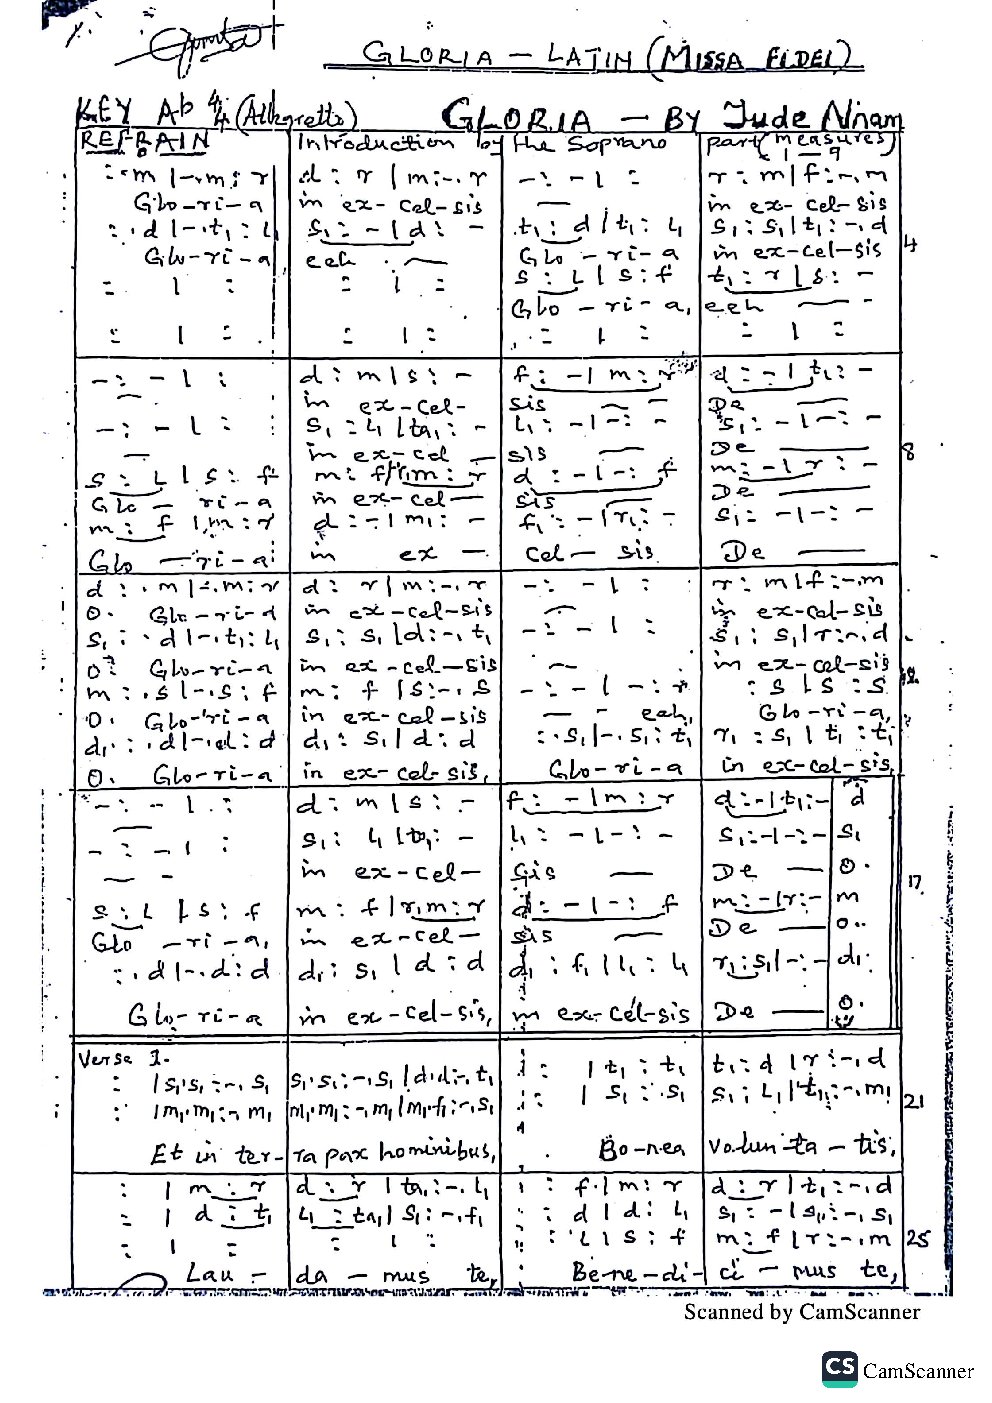 GLORIA – LATIN (MISSA FIDEI)
KEY Ab 4/4 (Allegretto) GLORIA – BY Jude Nnam
REFRAIN Introduction by the Soprano part (measures 1 – 9)
: .m |-.,m : r d : r | m :-. r - : - | : r : m | f :-. m
Glo-ri-a in ex-cel-sis — in ex-cel-sis
: . d |-. t₁ : l₁ s₁ : - | d : - t₁ : d | t₁ : l₁ s₁ : s₁ | t₁ :-. d 4
Glo-ri-a, eeh — Glo-ri-a in ex-cel-sis
s : l | s : f t₁ : r | s : -
Glo-ri-a, eeh —
: | : : | : : | : : | :
- : - | : d : m | s : - f : - | m : r d : - | t₁ : -
in ex-cel- sis — De —
- : - | : s₁ : l₁ | ta₁ : - l₁ : - | - : - s₁ : - | - : -
— in ex-cel — sis — De — 8
s : l | s : f m : f | r,m : r d : - | - : f m : - | r : -
Glo – ri-a in ex-cel — sis — De —
m : f | m : r d : - | m₁ : - f₁ : - | r₁ : - s₁ : - | - : -
Glo — ri-a in ex — cel – sis De —
d : . m |-. m : r d : r | m :-. r - : - | : r : m | f :-. m
O. Glo-ri-a in ex-cel-sis — in ex-cel-sis
s₁ : . d |-. t₁ : l₁ s₁ : s₁ | d :-. t₁ - : - | : s₁ : s₁ | r :-. d
O? Glo-ri-a in ex-cel-sis — in ex-cel-sis
m : . s |-. s : f m : f | s :-. s - : - | - : r : s | s : s 12
O. Glo-ri-a in ex-cel-sis — eeh, Glo-ri-a,
d₁ : . d |-. d : d d₁ : s₁ | d : d : . s₁ |-. s₁ : t₁ r₁ : s₁ | t₁ : t₁
O. Glo-ri-a in ex-cel-sis, Glo-ri-a in ex-cel-sis,
- : - | : d : m | s : - f : - | m : r d : - | t₁ : - d
- : - | : s₁ : l₁ | ta₁ : - l₁ : - | - : - s₁ : - | - : - s₁
— - in ex-cel- sis — De — O.
s : l | s : f m : f | r,m : r d : - | - : f m : - | r : - m 17
Glo – ri-a, in ex-cel — sis — De — o..
: . d |-. d : d d₁ : s₁ | d : d d₁ : f₁ | l₁ : l₁ r₁ : s₁ | - : - d₁
Glo-ri-a in ex-cel-sis, in ex-cel-sis De — O.
Verse 1.
: | s₁. s₁ :-. s₁ s₁. s₁ :-. s₁ | d. d :-. t₁ : | t₁ : t₁ t₁ : d | r :-. d
: | m₁. m₁ :-. m₁ m₁. m₁ :-. m₁ | m₁. f₁ :-. s₁ : | s₁ : s₁ s₁ : l₁ | t₁ :-. m₁ 21
Et in ter- ra pax hominibus, Bo-nea volun-ta – tis,
: | m : r d : r | ta₁ :-. l₁ : f | m : r d : r | t₁ :-. d
: | d : t₁ l₁ : ta₁ | s₁ :-. f₁ : d | d : l₁ s₁ : - | s₁ :-. s₁
: | : : | : : l | s : f m : f | r :-. m 25
Lau – da – mus te, Be-ne-di- ci – mus te,
Scanned by CamScanner
CS CamScanner